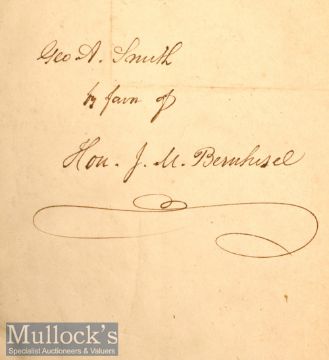 Geo A. Smith
by favor of
Hon. J. M. Bernhisel
Mullock's
Specialist Auctioneers & Valuers